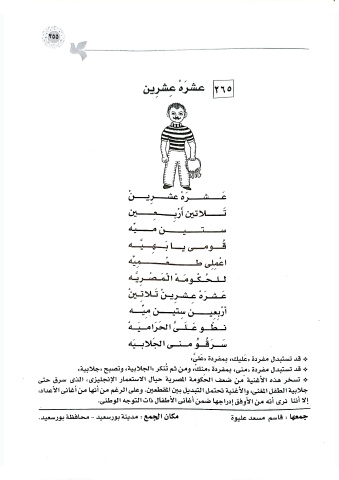 ٢٥٥
٢٦٥ عشرَهْ عِشرين
عَــشَــرَهْ عـشـريـنْ
تَـــلاتين أَرْبِـعـــين
ســتـــيــن مــيّــه
قُــومـى يـا بَـهِـيَّـه
اعْمِلى طَــعْــمِـيّـه
للحُكُومَهْ المَصْرِيَّه
عشرَهْ عشرين تلاتين
أربعين ستين ميّـه
نطّو علىَ الحَراميّة
سرقُوِ منى الجَلابيّه
* قد تستبدل مفردة «عليك» بمفردة «علىّ».
* قد تستبدل مفردة «منى» بمفردة «منك»، ومن ثم تُنكر «الجلابية» وتصبح «جلابية».
* تسخر هذه الأغنية من ضعف الحكومة المصرية حيال الاستعمار الإنجليزى، الذى سرق حتى
جلابية الطفل المغنى، والأغنية تحتمل التبديل بين المقطعين. وعلى الرغم من أنها من أغانى الأعداد،
إلا أننا نرى أنه من الأوفق إدراجها ضمن أغانى الأطفال ذات التوجه الوطنى.
جمعها : قاسم مسعد عليوة مكان الجمع : مدينة بورسعيد - محافظة بورسعيد.